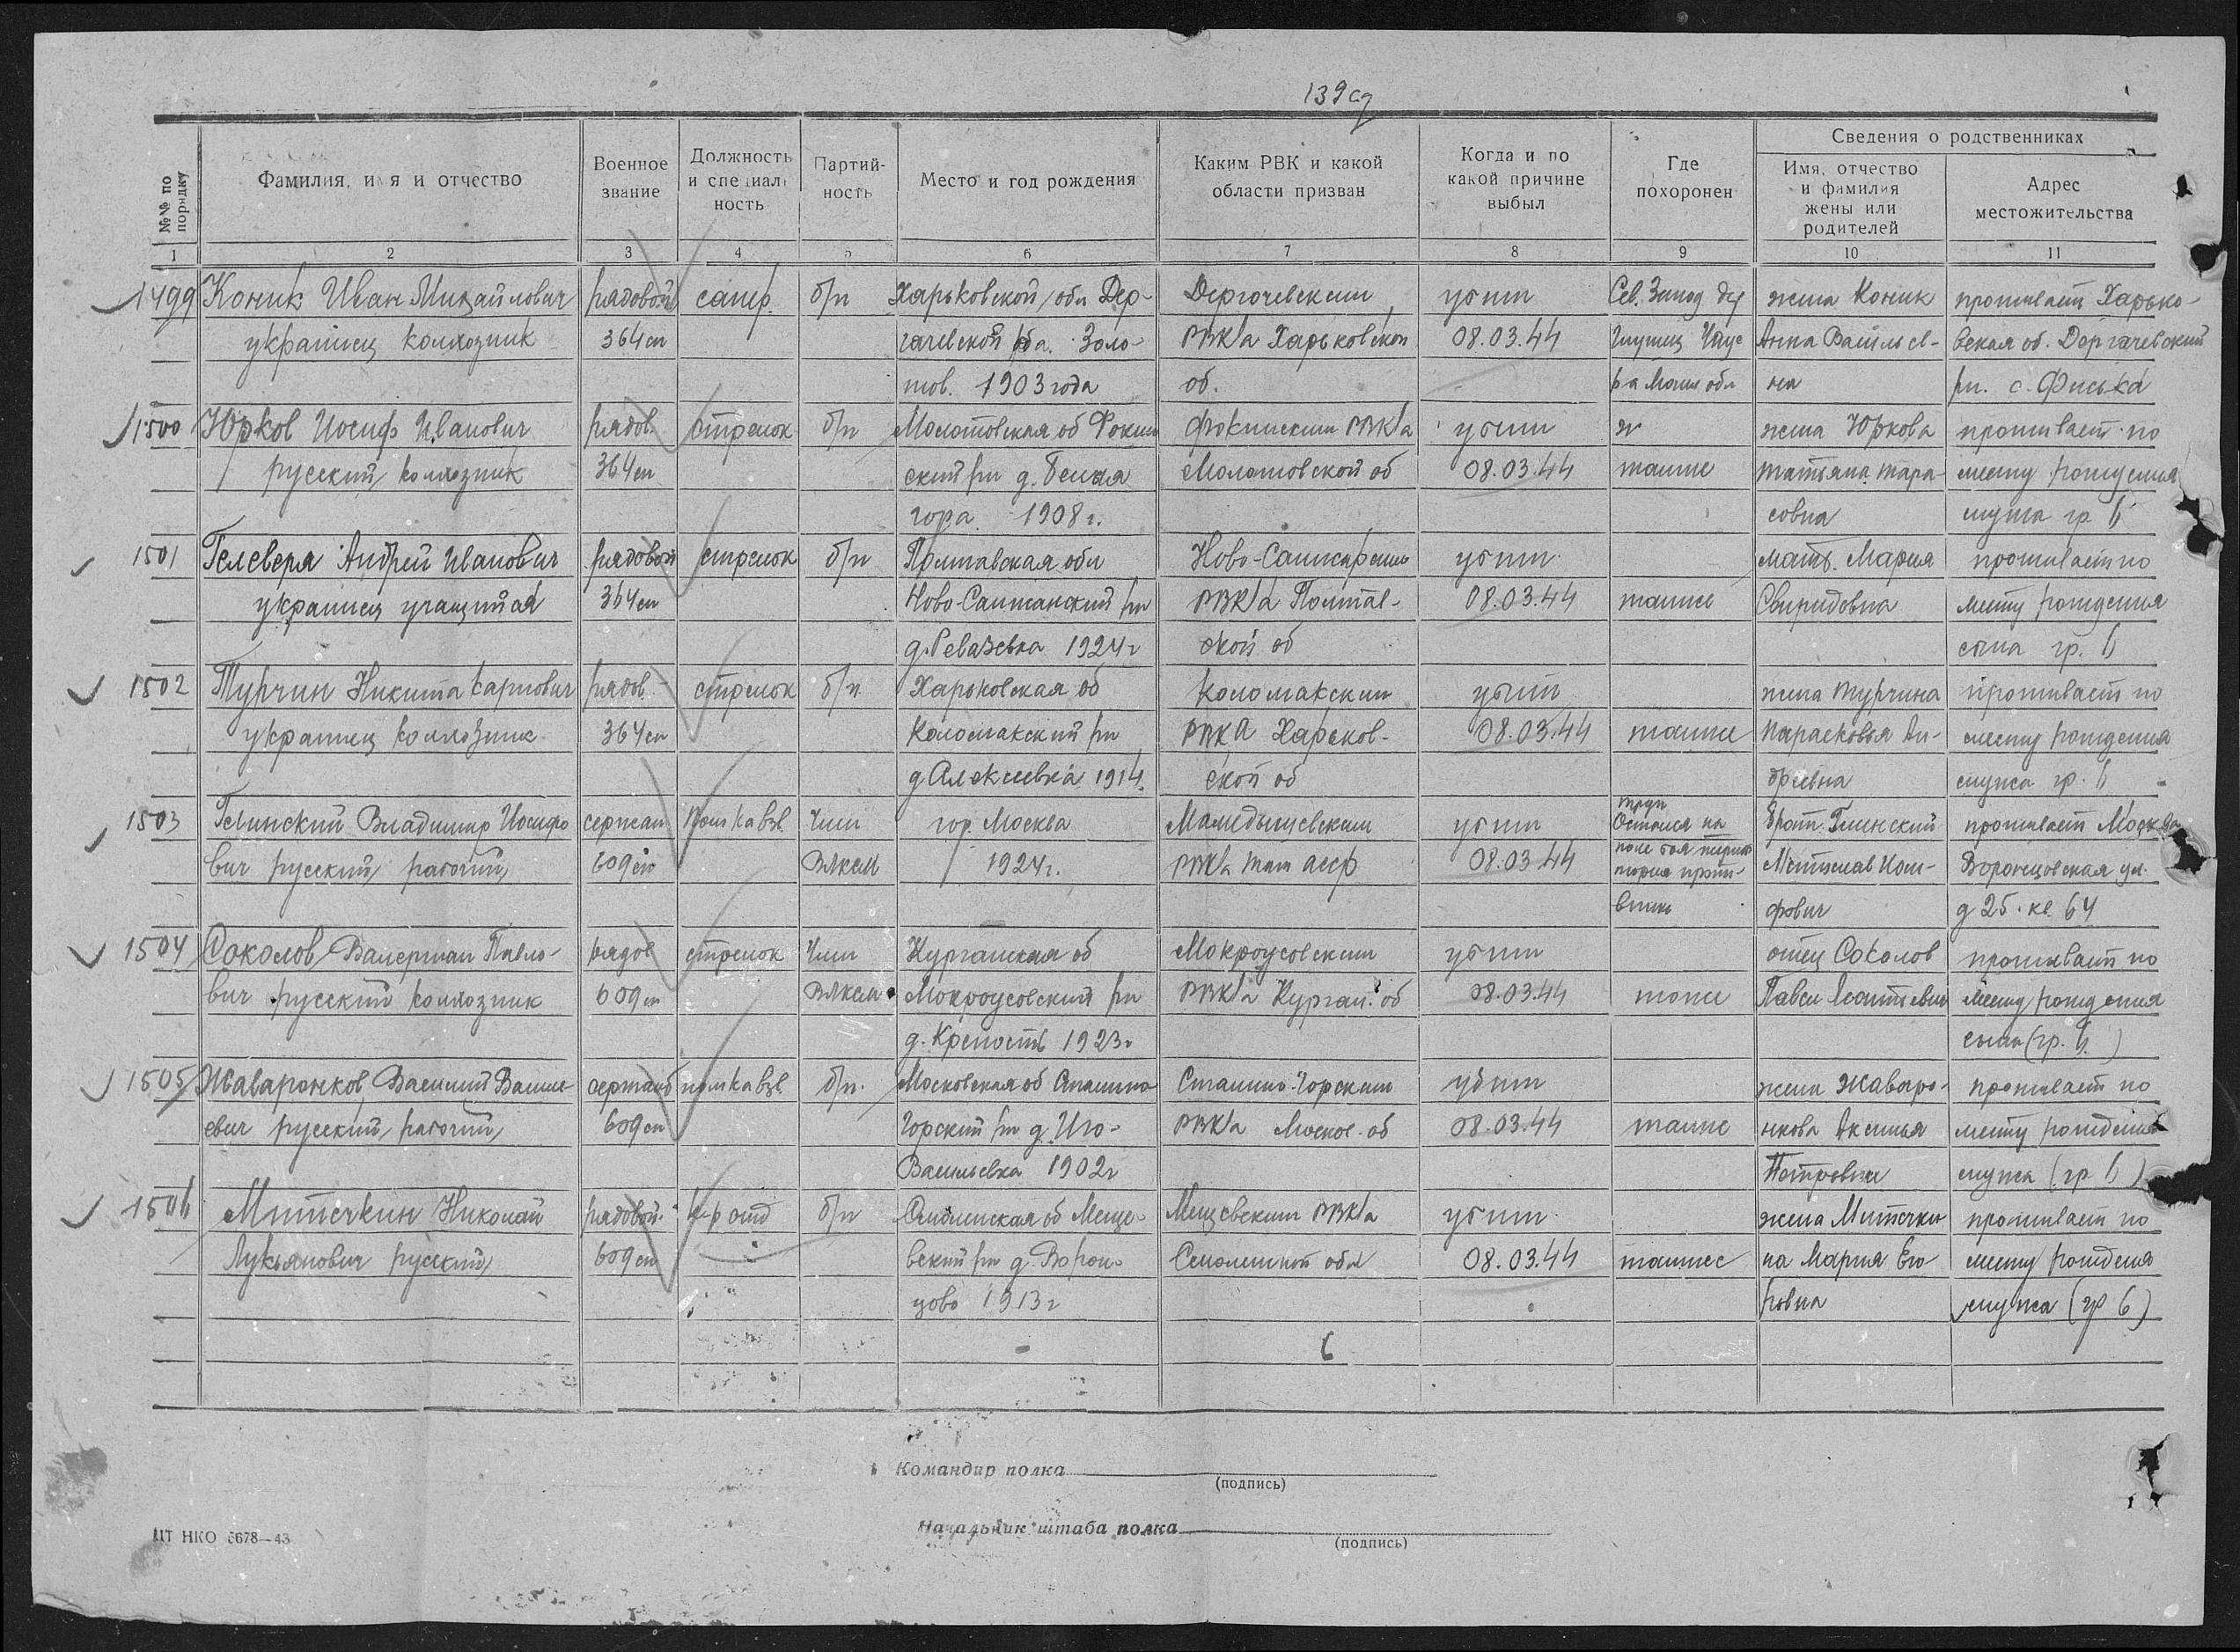 139 сд
Сведения о родственниках
№№ по порядку
Фамилия, имя и отчество
Военное звание
Должность и специальность
Партийность
Место и год рождения
Каким РВК и какой области призван
Когда и по какой причине выбыл
Где похоронен
Имя, отчество и фамилия жены или родителей
Адрес местожительства
1 2 3 4 5 6 7 8 9 10 11
1499 Коник Иван Михайлович рядовой б/п Харьковской обл Дер- Дергачевским убит Сев. Запад жена Коник проживает Харько-
украинец колхозник 364 сп гачевской Золо- РВК/а Харьковской 08.03.44 Анна Василев- вская об. Дергачевский
тов. 1903 года об. на рн. с. Фиська
1500 Юрков Иосиф Иванович рядов. стрелок б/п Молотовская об Фокин Фокинским РВК/а убит жена Юркова проживает по
русский колхозник 364 сп ский рн д. Белая Молотовской об 08.03.44 также Татьяна Тара- месту рождения
гора 1908 г. совна мужа гр 6
1501 Гелевера Андрей Иванович рядовой стрелок б/п Полтавская обл Ново-Санжарским убит мать Мария проживает по
украинец учащийся 364 сп Ново-Санжанский рн РВК/а Полтав- 08.03.44 также Свиридовна месту рождения
д. Ревазевка 1924 г ской об сына гр. 6
1502 Турчин Никита Карпович рядов. стрелок б/п Харьковская об Коломакским убит жена Турчина проживает по
украинец колхозник 364 сп Коломакский рн РВКА Харьков- 08.03.44 также Парасковья Ан- месту рождения
д Алексеевка 1914. ской об дреевна мужа гр. 6
1503 Гелинский Владимир Иосифо сержан пом ка взв. Член гор. Москва Мамадышевским убит труп Остался на брат. Глинский проживает Москва
вич русский, рабочий, 609 сп ВЛКСМ 1924 г. РВК/а Тат АССР 08.03.44 поле боя Мстислав Иоси- Воронцовская ул.
фович д 25. кв 64
1504 Соколов Валериан Павло- рядов стрелок Член Курганская об Мокроусовским убит отец Соколов проживает по
вич русский колхозник 609 сп ВЛКСМ Мокроусовский рн РВК/а Курган. об 08.03.44 тоже Павел Леонтьевич месту рождения
д. Крепость 1923 г сына (гр. 6)
1505 Жаваронков Василий Васил- сержант пом ка взв. б/п. Московская об Сталино- Сталино-Горским убит жена Жаваро- проживает по
евич русский, рабочий, 609 сп Горский рн д. Иго- РВК/а Москов. об 08.03.44 также нкова Аксинья месту рождения
Васильевка 1902 г Петровна мужа (гр 6)
1506 Митечкин Николай рядовой. к-р отд б/п Смоленская об Меще- Мещевским РВК/а убит жена Митечки- проживает по
Лукьянович русский, 609 сп вский рн д. Ворон- Смоленской обл 08.03.44 также на Мария Его месту рождения
цово 1913 г ровна мужа (гр 6)
Командир полка
(подпись)
Начальник штаба полка
(подпись)
ЦТ НКО 5678—43